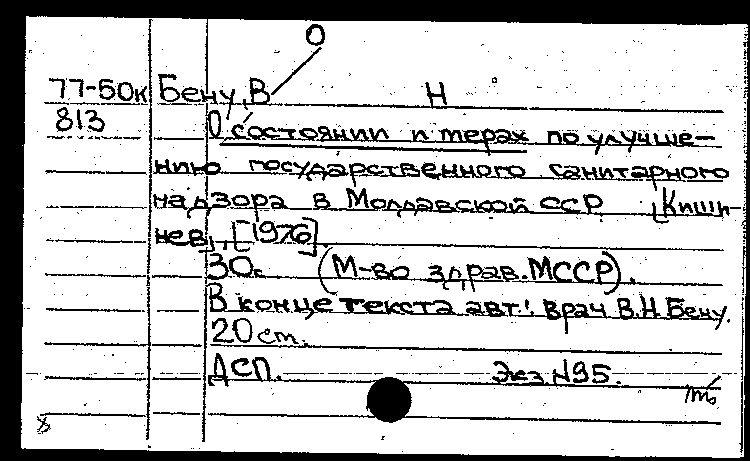 О
77-50к Бену, В Н
813 О состоянии и мерах по улучше-
нию государственного санитарного
надзора в Молдавской ССР [Киши-
нев], [1976].
30с. (М-во здрав. МССР).
В конце текста авт.: врач В.Н Бену.
20 см.
ДСП. Экз. №95.
8